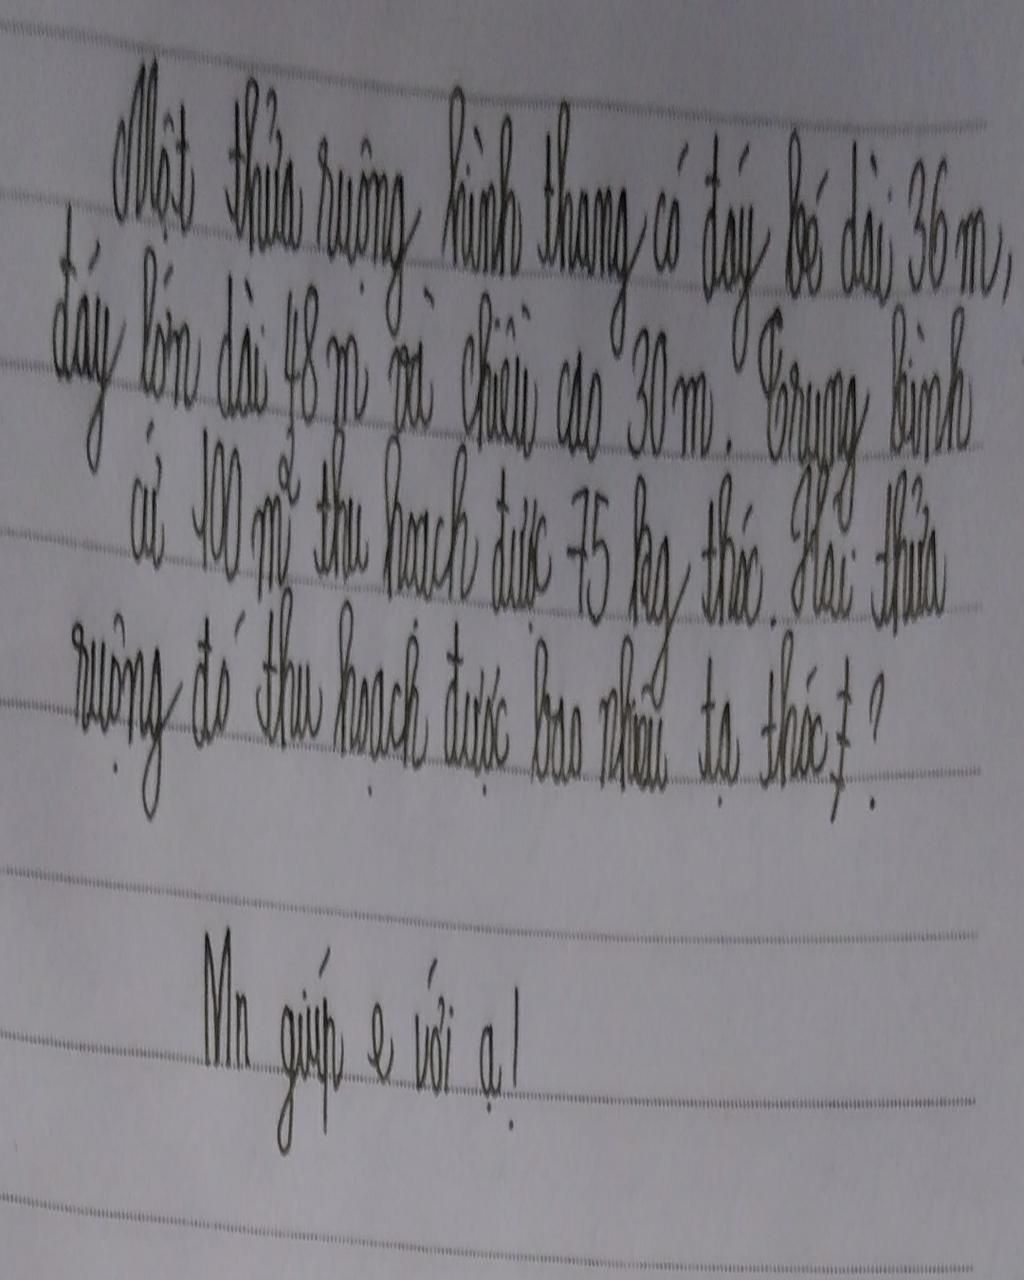 Một thửa ruộng hình thang có đáy bé dài 36m,
đáy lớn dài 48m và chiều cao 30m. Trung bình
cứ 100m² thu hoạch được 75 kg thóc. Hỏi thửa
ruộng đó thu hoạch được bao nhiêu tạ thóc?
Mn giúp e với ạ!